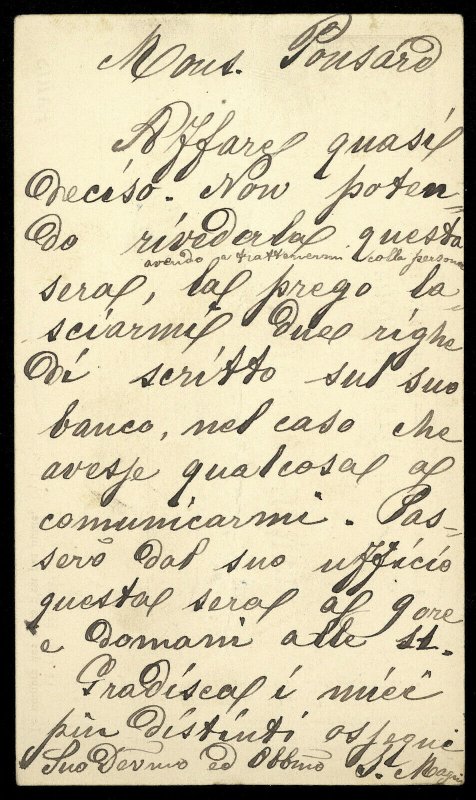 Mons. Ponsard
Affare quasi
deciso. Non poten-
do rivederla questa
avendo a trattenermi colla persona
sera, la prego la-
sciarmi due righe
di scritto sul suo
banco, nel caso che
avesse qualcosa a
comunicarmi. Pas-
serò dal suo ufficio
questa sera a 9 ore
e domani alle 11.
Gradisca i miei
più distinti ossequi
Suo Devmo ed Obbmo S. Magi